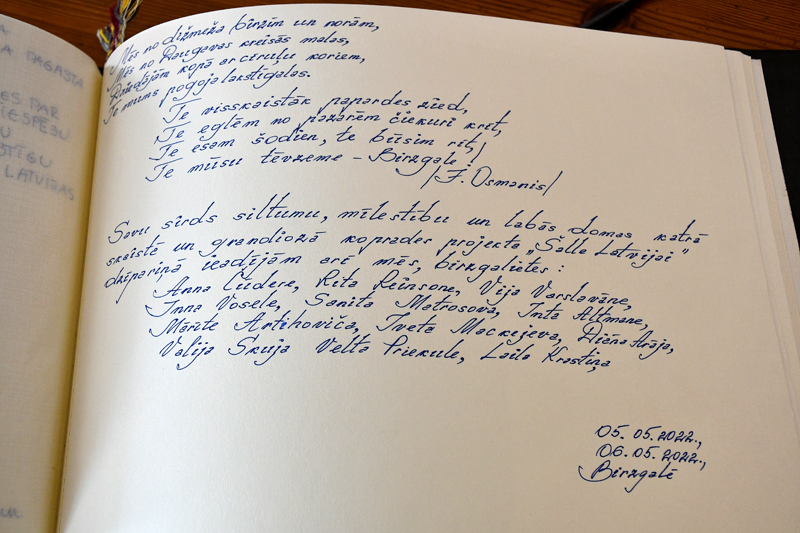 A
A PAGASTA
ES PAR
IESPĒJU
U
STĪGU
LATVIJAS
Mēs no dižmeža birzīm un norām,
Mēs no Daugavas kreisās malas,
Dziedājām kopā ar cīruļu koriem,
Te mums pogoja lakstīgalas.
Te visskaistāk papardes zied,
Te eglēm no pazarēm čiekuri krīt,
Te esam šodien, te būsim rīt,
Te mūsu tēvzeme – Birzgale!
/J. Osmanis/
Savu sirds siltumu, mīlestību un labās domas katrā
skaistā un grandiozā koprades projekta „Šalle Latvijai"
dzīpariņā ieadījām arī mēs, birzgalietes:
Anna Lūdere, Rita Reinsone, Vija Varslavāne,
Inna Vosele, Sanita Matrosova, Inta Altmane,
Mārīte Artihoviča, Iveta Mackejeva, Diāna Arāja,
Valija Skuja Velta Priekule, Laila Krastiņa
05.05.2022.,
06.05.2022.,
Birzgalē